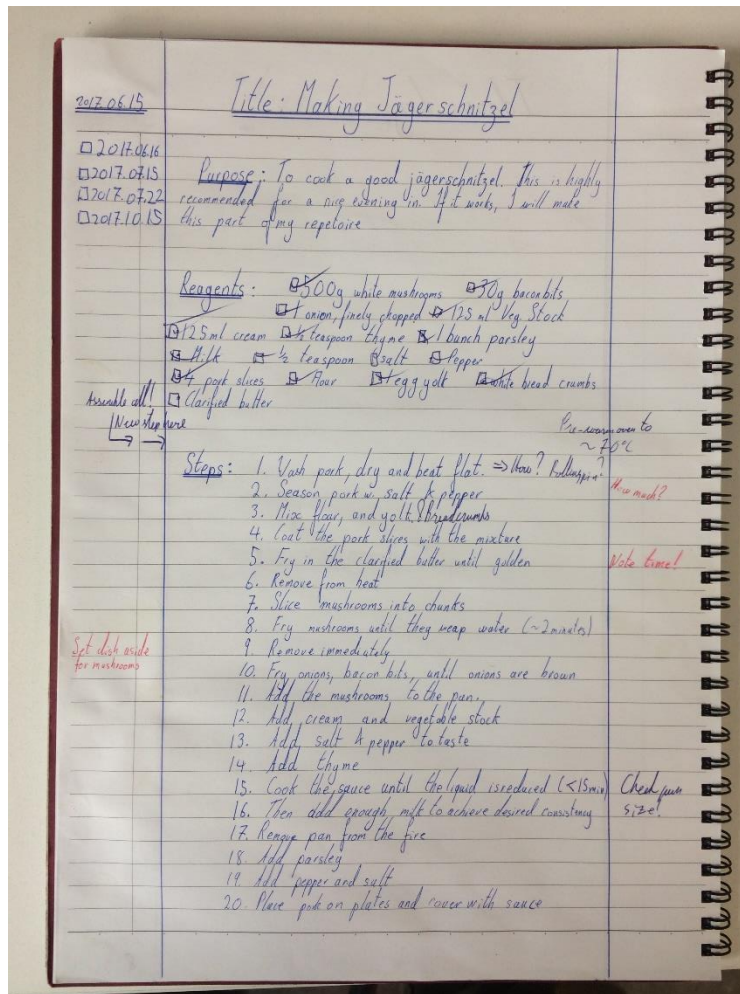 2017.06.15
Title: Making Jägerschnitzel
2017.06.16
2017.07.15
2017.07.22
2017.10.15
Purpose: To cook a good jägerschnitzel. This is highly
recommended for a nice evening in. If it works, I will make
this part of my repetoire
Reagents: 500g white mushrooms 30g bacon bits
1 onion, finely chopped 125 ml Veg. Stock
125ml cream ½ teaspoon thyme 1 bunch parsley
Milk ½ teaspoon salt Pepper
4 pork slices flour 1 egg yolk white bread crumbs
Clarified butter
Assemble all!
New step here
Pre-warm oven to
~70°C
Steps: 1. Wash pork, dry and beat flat. ⇒ How? Rollingpin?
2. Season pork w. salt & pepper
How much?
3. Mix flour, and yolk & breadcrumbs
4. Coat the pork slices with the mixture
5. Fry in the clarified butter until golden
Note time!
6. Remove from heat
7. Slice mushrooms into chunks
8. Fry mushrooms until they weap water (~2 minutes)
Set dish aside
for mushrooms
9. Remove immediately
10. Fry onions, bacon bits, until onions are brown
11. Add the mushrooms to the pan.
12. Add cream and vegetable stock
13. Add salt & pepper to taste
14. Add thyme
15. Cook the sauce until the liquid is reduced (<15min)
Check pan
size!
16. Then add enough milk to achieve desired consistency
17. Remove pan from the fire
18. Add parsley
19. Add pepper and salt
20. Place pork on plates and cover with sauce